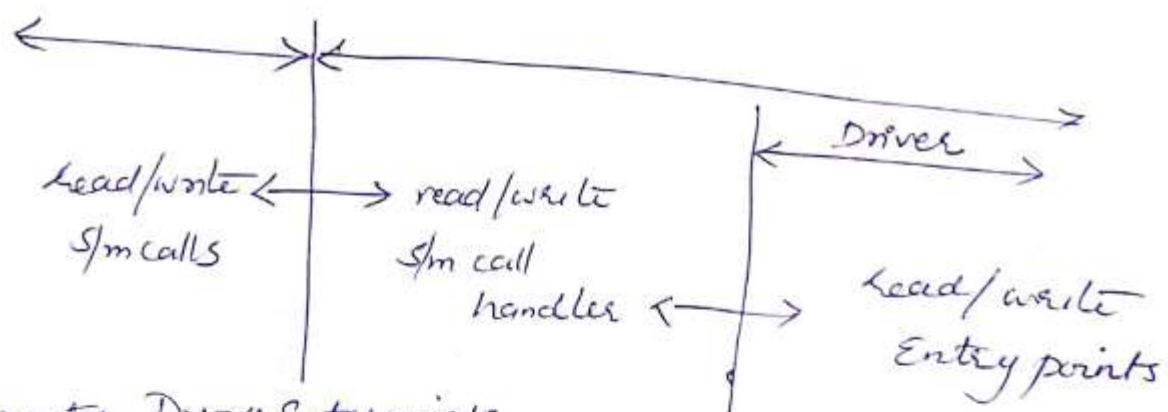 Driver
read/write
s/m calls
read/write
s/m call
handler
read/write
Entry points